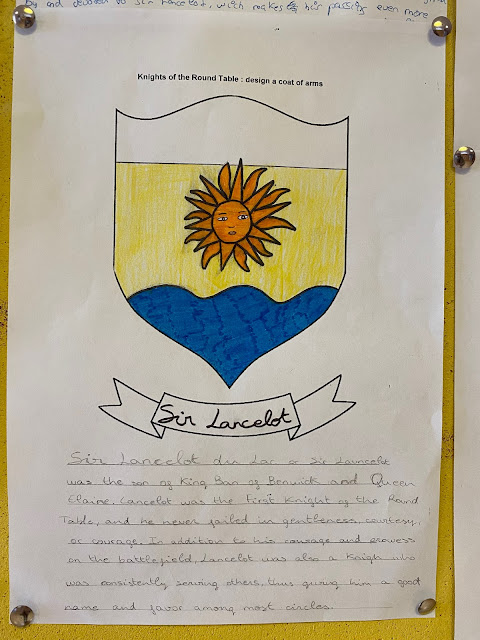 by and devoted to Sir Lancelot, wich makes his passing even more
Knights of the Round Table : design a coat of arms
Sir Lancelot
Sir Lancelot du Lac or Sir Launcelot
was the son of King Ban of Benwick and Queen
Elaine. Lancelot was the First Knight of the Round
Table, and he never failed in gentleness, courtesy,
or courage. In addition to his courage and prowess
on the battlefield, Lancelot was also a Knigh who
was consistently serving others, thus giving him a good
name and favor among most circles.